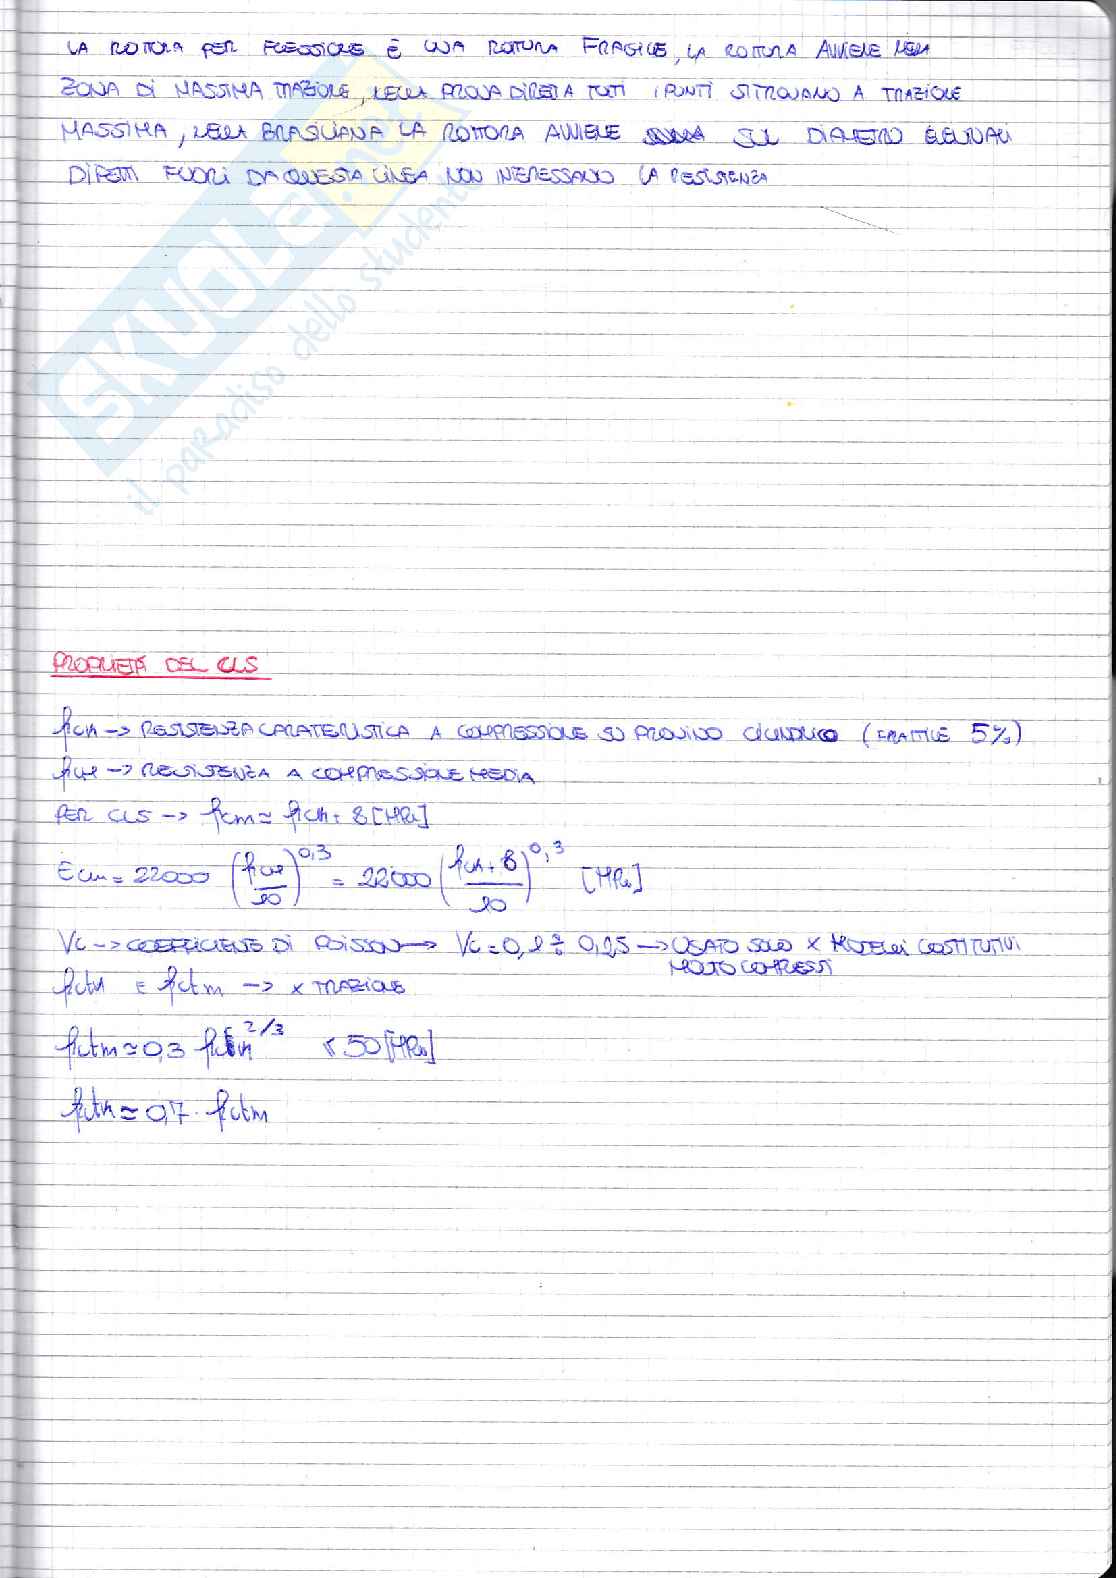 LA ROTTURA PER FLESSIONE È UNA ROTTURA FRAGILE, LA ROTTURA AVVIENE NELLA
ZONA DI MASSIMA TRAZIONE, NELLA PROVA DIRETTA TUTTI I PUNTI SI TROVANO A TRAZIONE
MASSIMA, NELLA BRASILIANA LA ROTTURA AVVIENE SUL DIAMETRO EVENTUALI
DIFETTI FUORI DA QUESTA LINEA NON INTERESSANO LA RESISTENZA
SKUOLA.NET
il paradiso dello studente
PROPRIETÀ DEL CLS
fck -> RESISTENZA CARATTERISTICA A COMPRESSIONE SU PROVINO CILINDRICO (FRATTILE 5%)
fcm -> RESISTENZA A COMPRESSIONE MEDIA
PER CLS -> fcm ≃ fck + 8 [MPa]
Ecm = 22000 (fcm/10)^0,3 = 22000 (fck + 8/10)^0,3 [MPa]
νc -> COEFFICIENTE DI POISSON -> νc = 0,1 ÷ 0,25 -> USATO SOLO x MODELLI COSTITUTIVI
MOLTO COMPLESSI
fctk E fctm -> x TRAZIONE
fctm ≃ 0,3 fck^2/3 < 50 [MPa]
fctk ≃ 0,7 · fctm